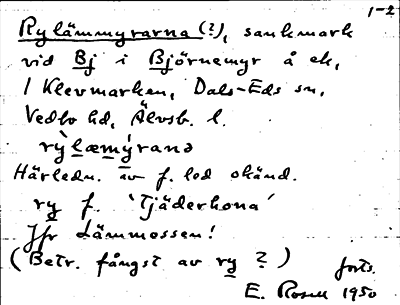 1-2
Rylämmyrarna (?), sankmark
vid Bj i Björnemyr å ek,
1 Klevmarken, Dals-Eds sn,
Vedbo hd, Älvsb. l.
rỳlæmýrana
Härledn. av f. led okänd.
ry f. 'Tjäderhona'
Jfr Lämmossen!
(Betr. fångst av ry ?)
forts.
E. Rosell 1950